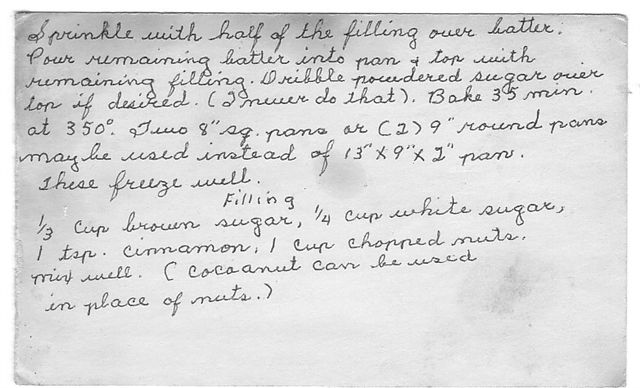 Sprinkle with half of the filling over batter.
Pour remaining batter into pan & top with
remaining filling. Dribble powdered sugar over
top if desired. (I never do that). Bake 35 min.
at 350°. Two 8" sq. pans or (2) 9" round pans
may be used instead of 13" X 9" X 2" pan.
These freeze well.
Filling
1/3 cup brown sugar, 1/4 cup white sugar,
1 tsp. cinnamon, 1 cup chopped nuts.
mix well. (cocoanut can be used
in place of nuts.)